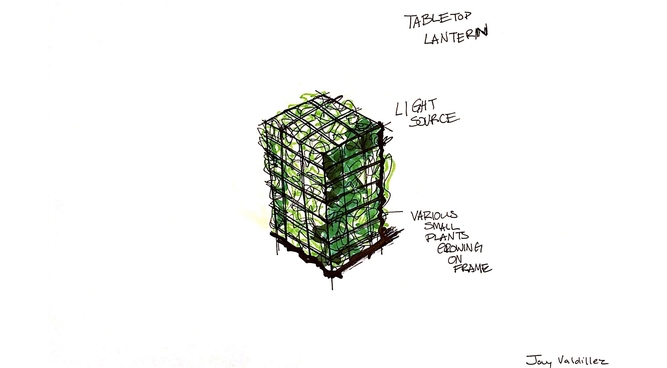 TABLETOP
LANTERN
LIGHT
SOURCE
VARIOUS
SMALL
PLANTS
GROWING
ON
FRAME
Jay Valdillez